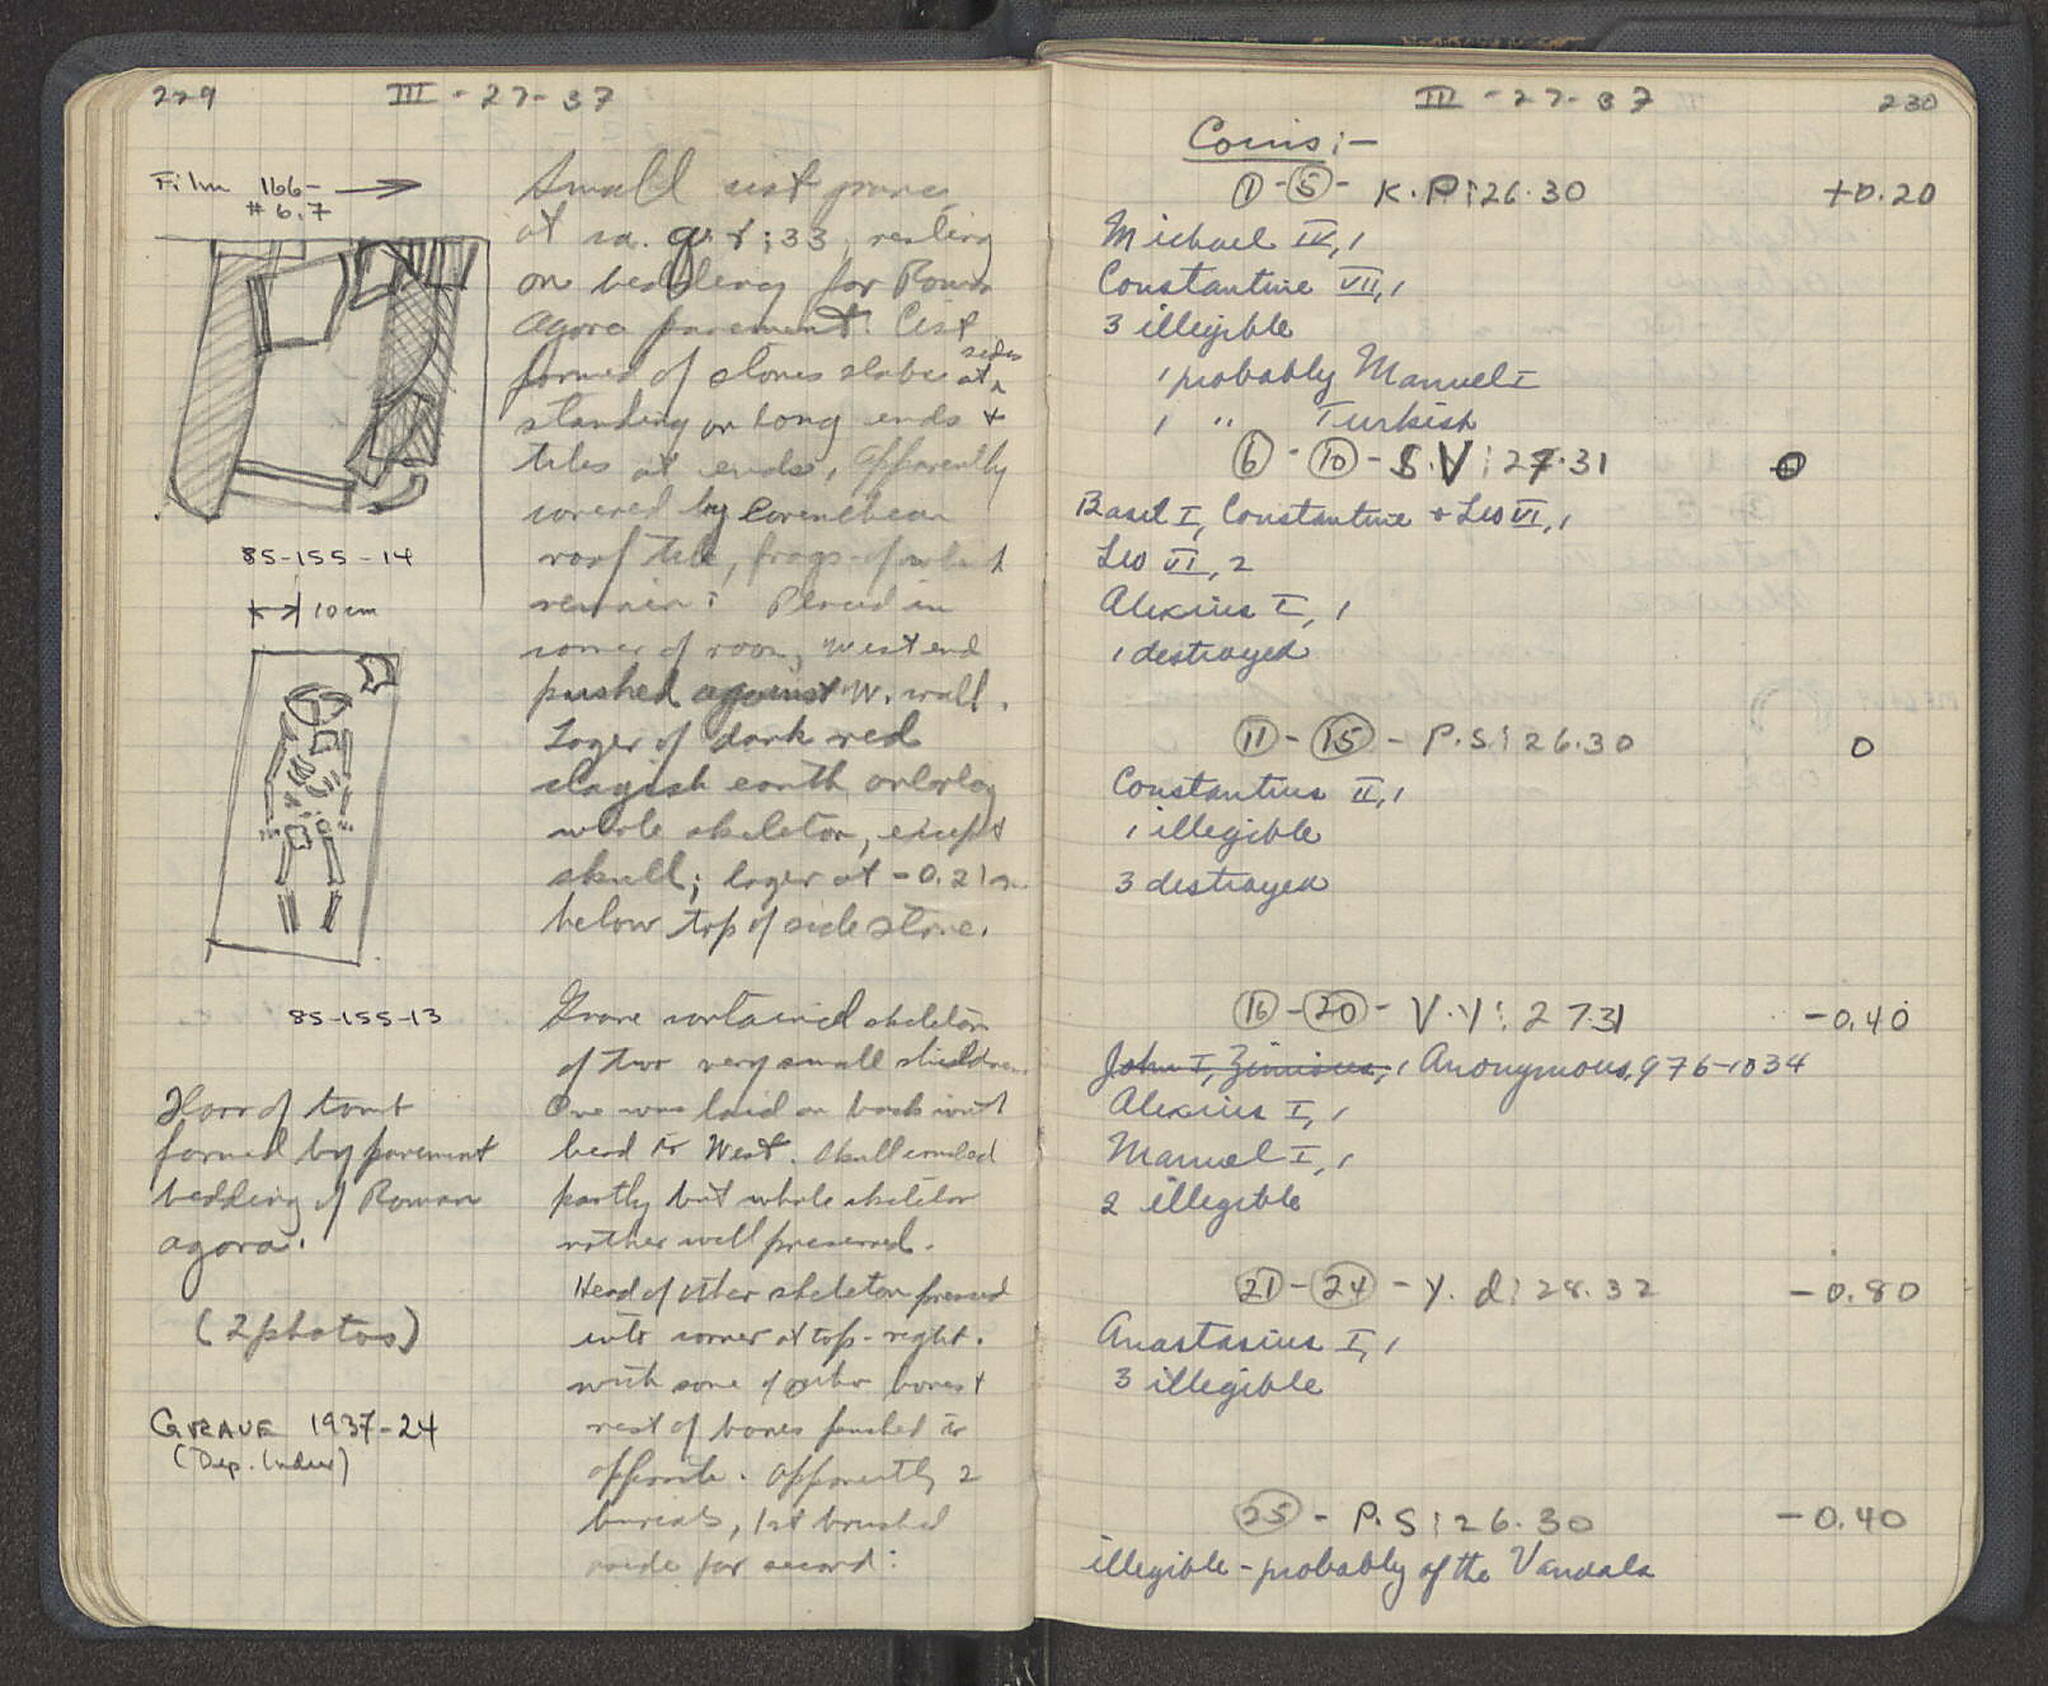 229 III - 27 - 37
Film 166- →
# 6.7
85-155-14
10 cm
85-155-13
Floor of tomb
formed by pavement
bedding of Roman
agora.
(2 photos)
GRAVE 1937-24
(Dep. Index)
Small cist grave
at ca. ; 33, resting
on bedding for Roman
Agora pavement. Cist
formed of stones slabs at sides
standing on long ends +
tiles at ends, apparently
covered by Corinthian
roof tile, frags. of which
remain. Placed in
corner of room, west end
pushed against W. wall.
Layer of dark red
clayish earth overlay
whole skeleton, except
skull; layer at -0.21 m
below top of side stone.
Grave contained skeleton
of two very small children
One was laid on back with
head to West. Skull crushed
partly but whole skeleton
rather well preserved.
Head of other skeleton pressed
into corner at top-right.
with some of other bones +
rest of bones pushed to
opposite. Apparently 2
burials, 1st brushed
aside for second.
III - 27 - 37 230
Coins:-
① - ⑤ - K.P:26.30 +0.20
Michael IV, 1
Constantine VII, 1
3 illegible
1 probably Manuel I
1 " Turkish
⑥ - ⑩ - S.V:27.31 0
Basil I, Constantine + Leo VI, 1
Leo VI, 2
Alexius I, 1
1 destroyed
⑪ - ⑮ - P.S:26.30 0
Constantius II, 1
1 illegible
3 destroyed
⑯ - ⑳ - V.Y:27.31 -0.40
John I, Zimisces, 1 Anonymous, 976-1034
Alexius I, 1
Manuel I, 1
2 illegible
㉑ - ㉔ - Y.d:28.32 -0.80
Anastasius I, 1
3 illegible
㉕ - P.S:26.30 -0.40
illegible - probably of the Vandals